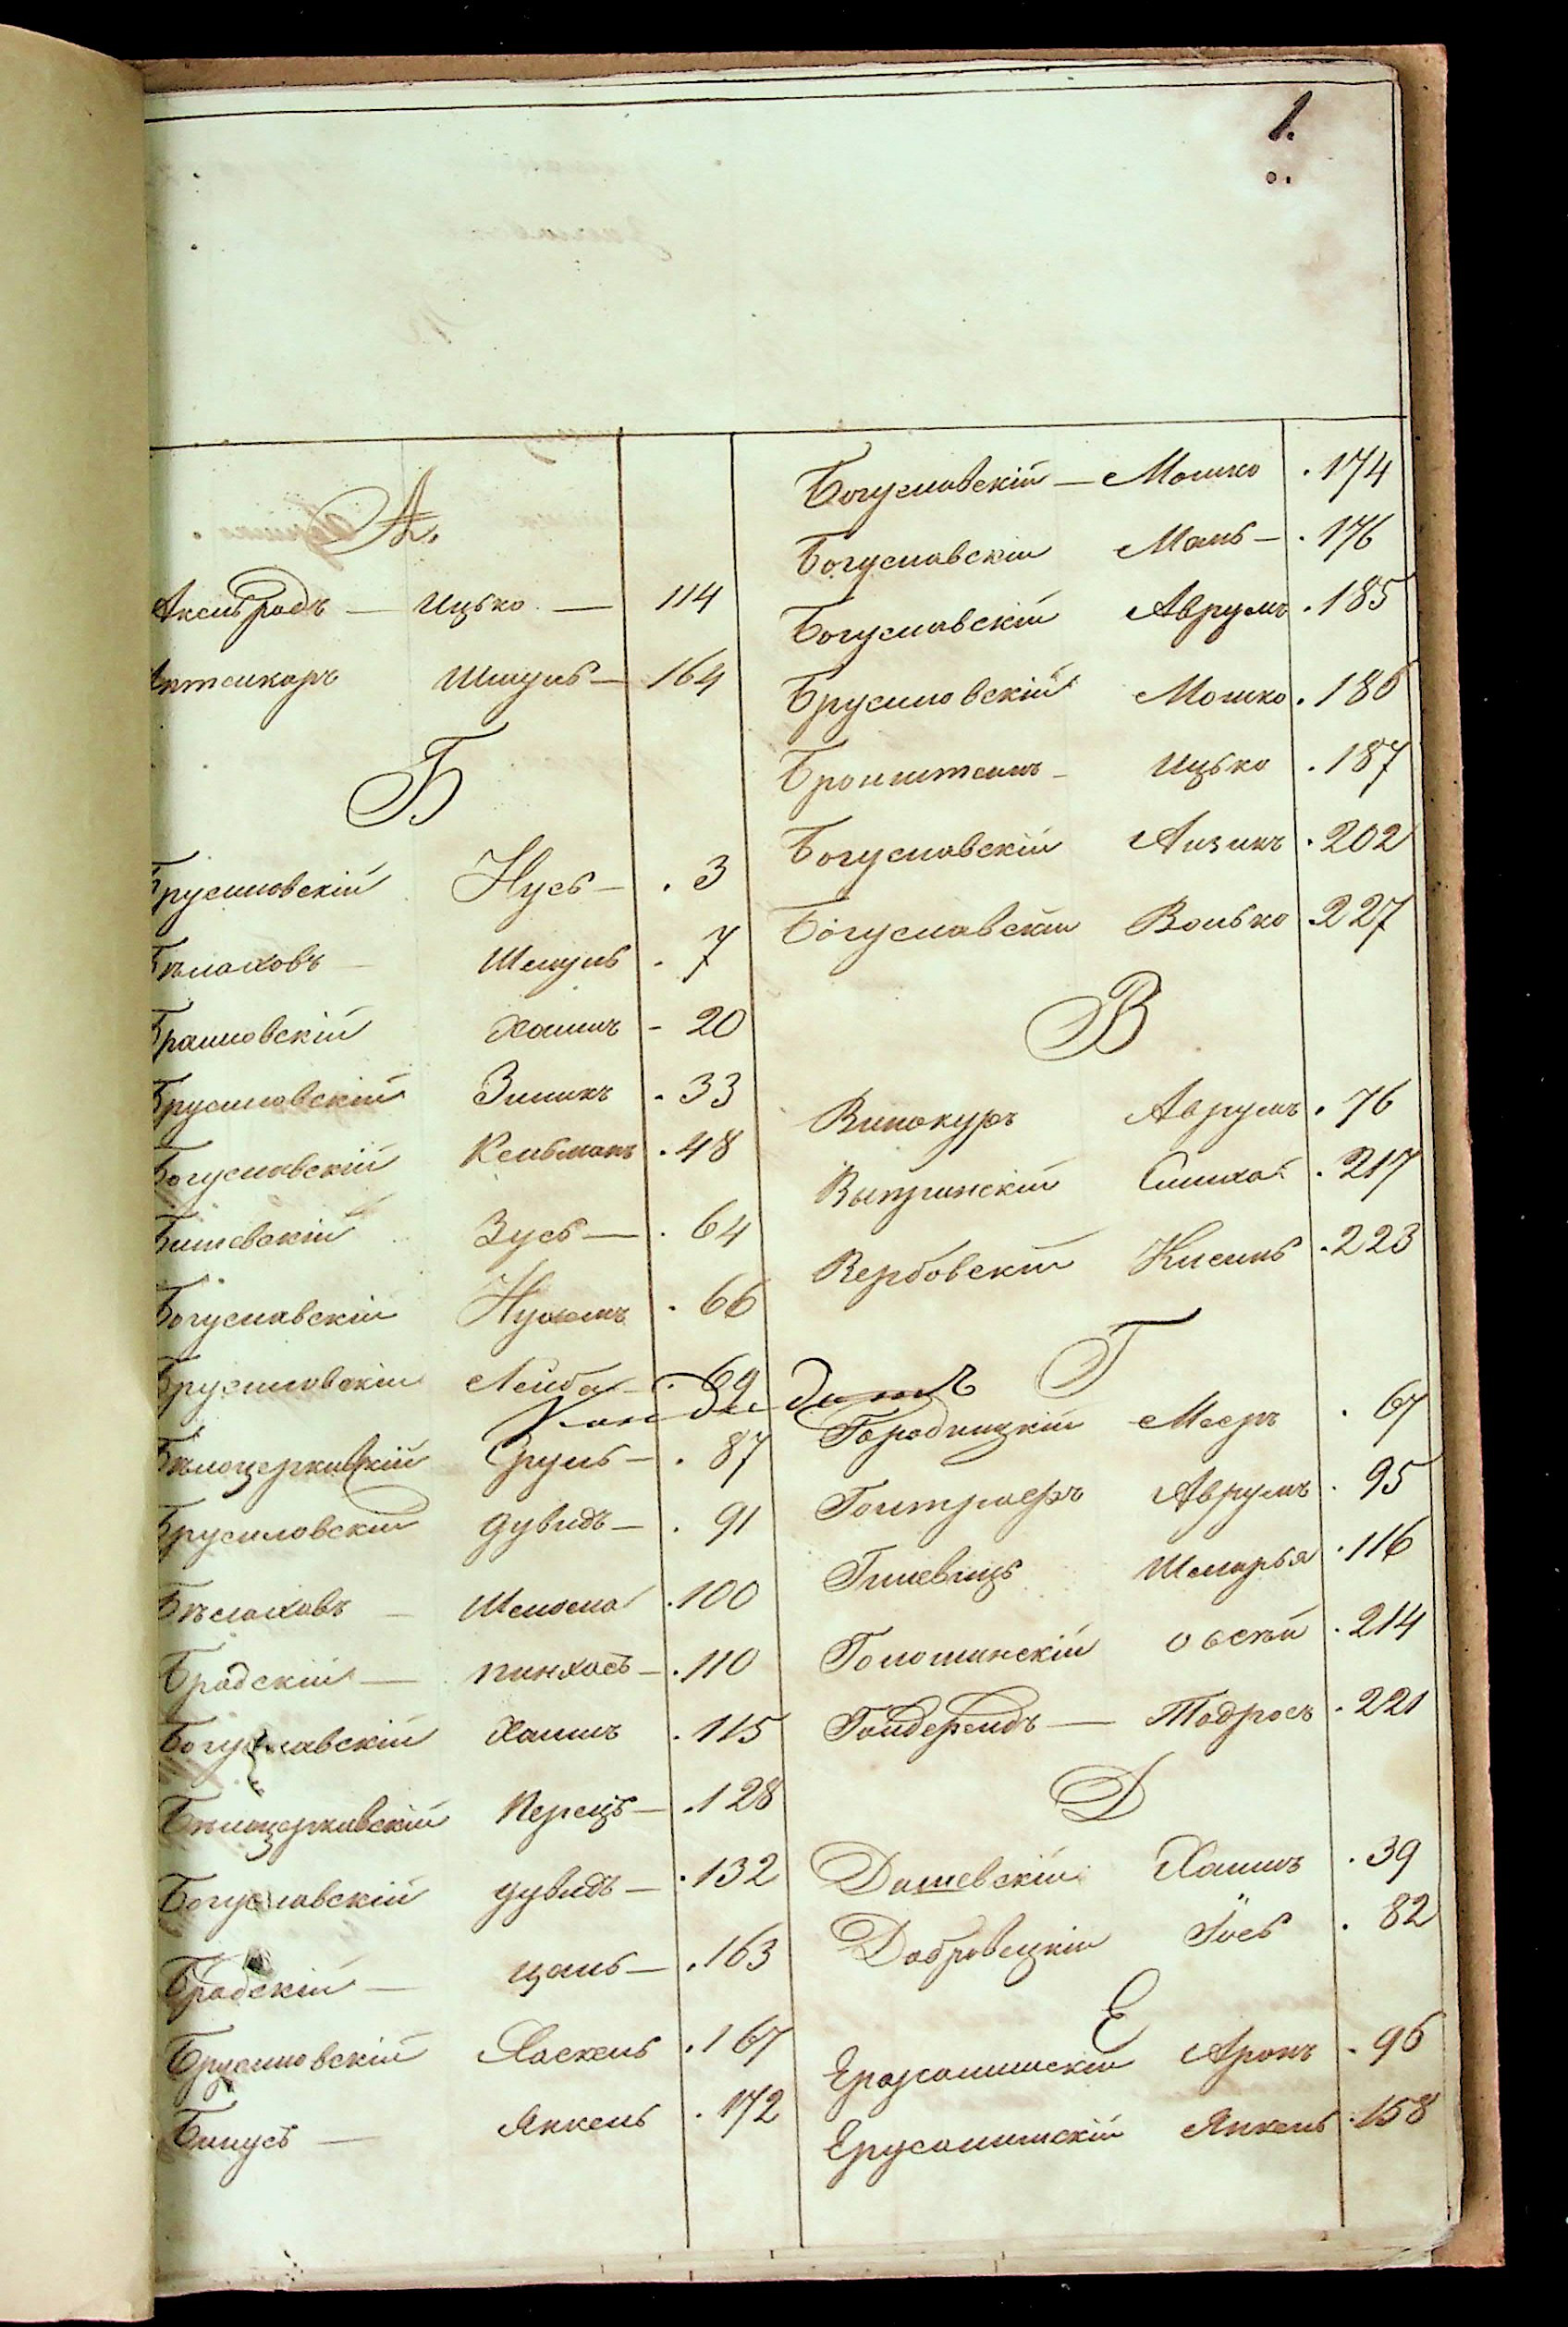 1.
А.
Аксельрадъ — Ицько — 114
Аптекаръ Шмуль — 164
Б
Брусиловскій Нусь — . 3
Бѣлаховъ — Шмуль . 7
Браиловскій Хаимъ - 20
Брусиловскій Зиликъ . 33
Богуславскій Кельманъ . 48
Бишевскій Зусь — . 64
Богуславскій Нухимъ . 66
Брусиловскій Лейба — . 69
Кандидатъ
Бѣлоцерковскій Сруль — . 87
Брусиловскій Дувидъ — . 91
Бѣлаховъ — Шелома . 100
Бродскій — Пинхасъ — . 110
Богуславскій Хаимъ . 115
Бѣлоцерковскій Перецъ — . 128
Богуславскій Дувидъ — . 132
Бродскій — Цаль — . 163
Брусиловскій Хаскель . 167
Бинусъ — Янкель . 172
Богуславскій — Мошко . 174
Богуславскій Маль — . 176
Богуславскій Аврумъ . 185
Брусиловскій Мошко . 186
Бронштеинъ — Ицько . 187
Богуславскій Аизикъ . 202
Богуславскій Волько . 227
В
Винокуръ Аврумъ . 76
Симха . 217
Вербовскій Кисиль . 223
Г
Городицкій Мееръ . 67
Аврумъ . 95
Гилевицъ Шмарья . 116
Голошинскій Овсѣй . 214
Тодросъ . 221
Д
Дашевскій Хаимъ . 39
Добровецкій Іось . 82
Е
Ерусалимскій Аронъ . 96
Ерусалимскій Янкель . 158